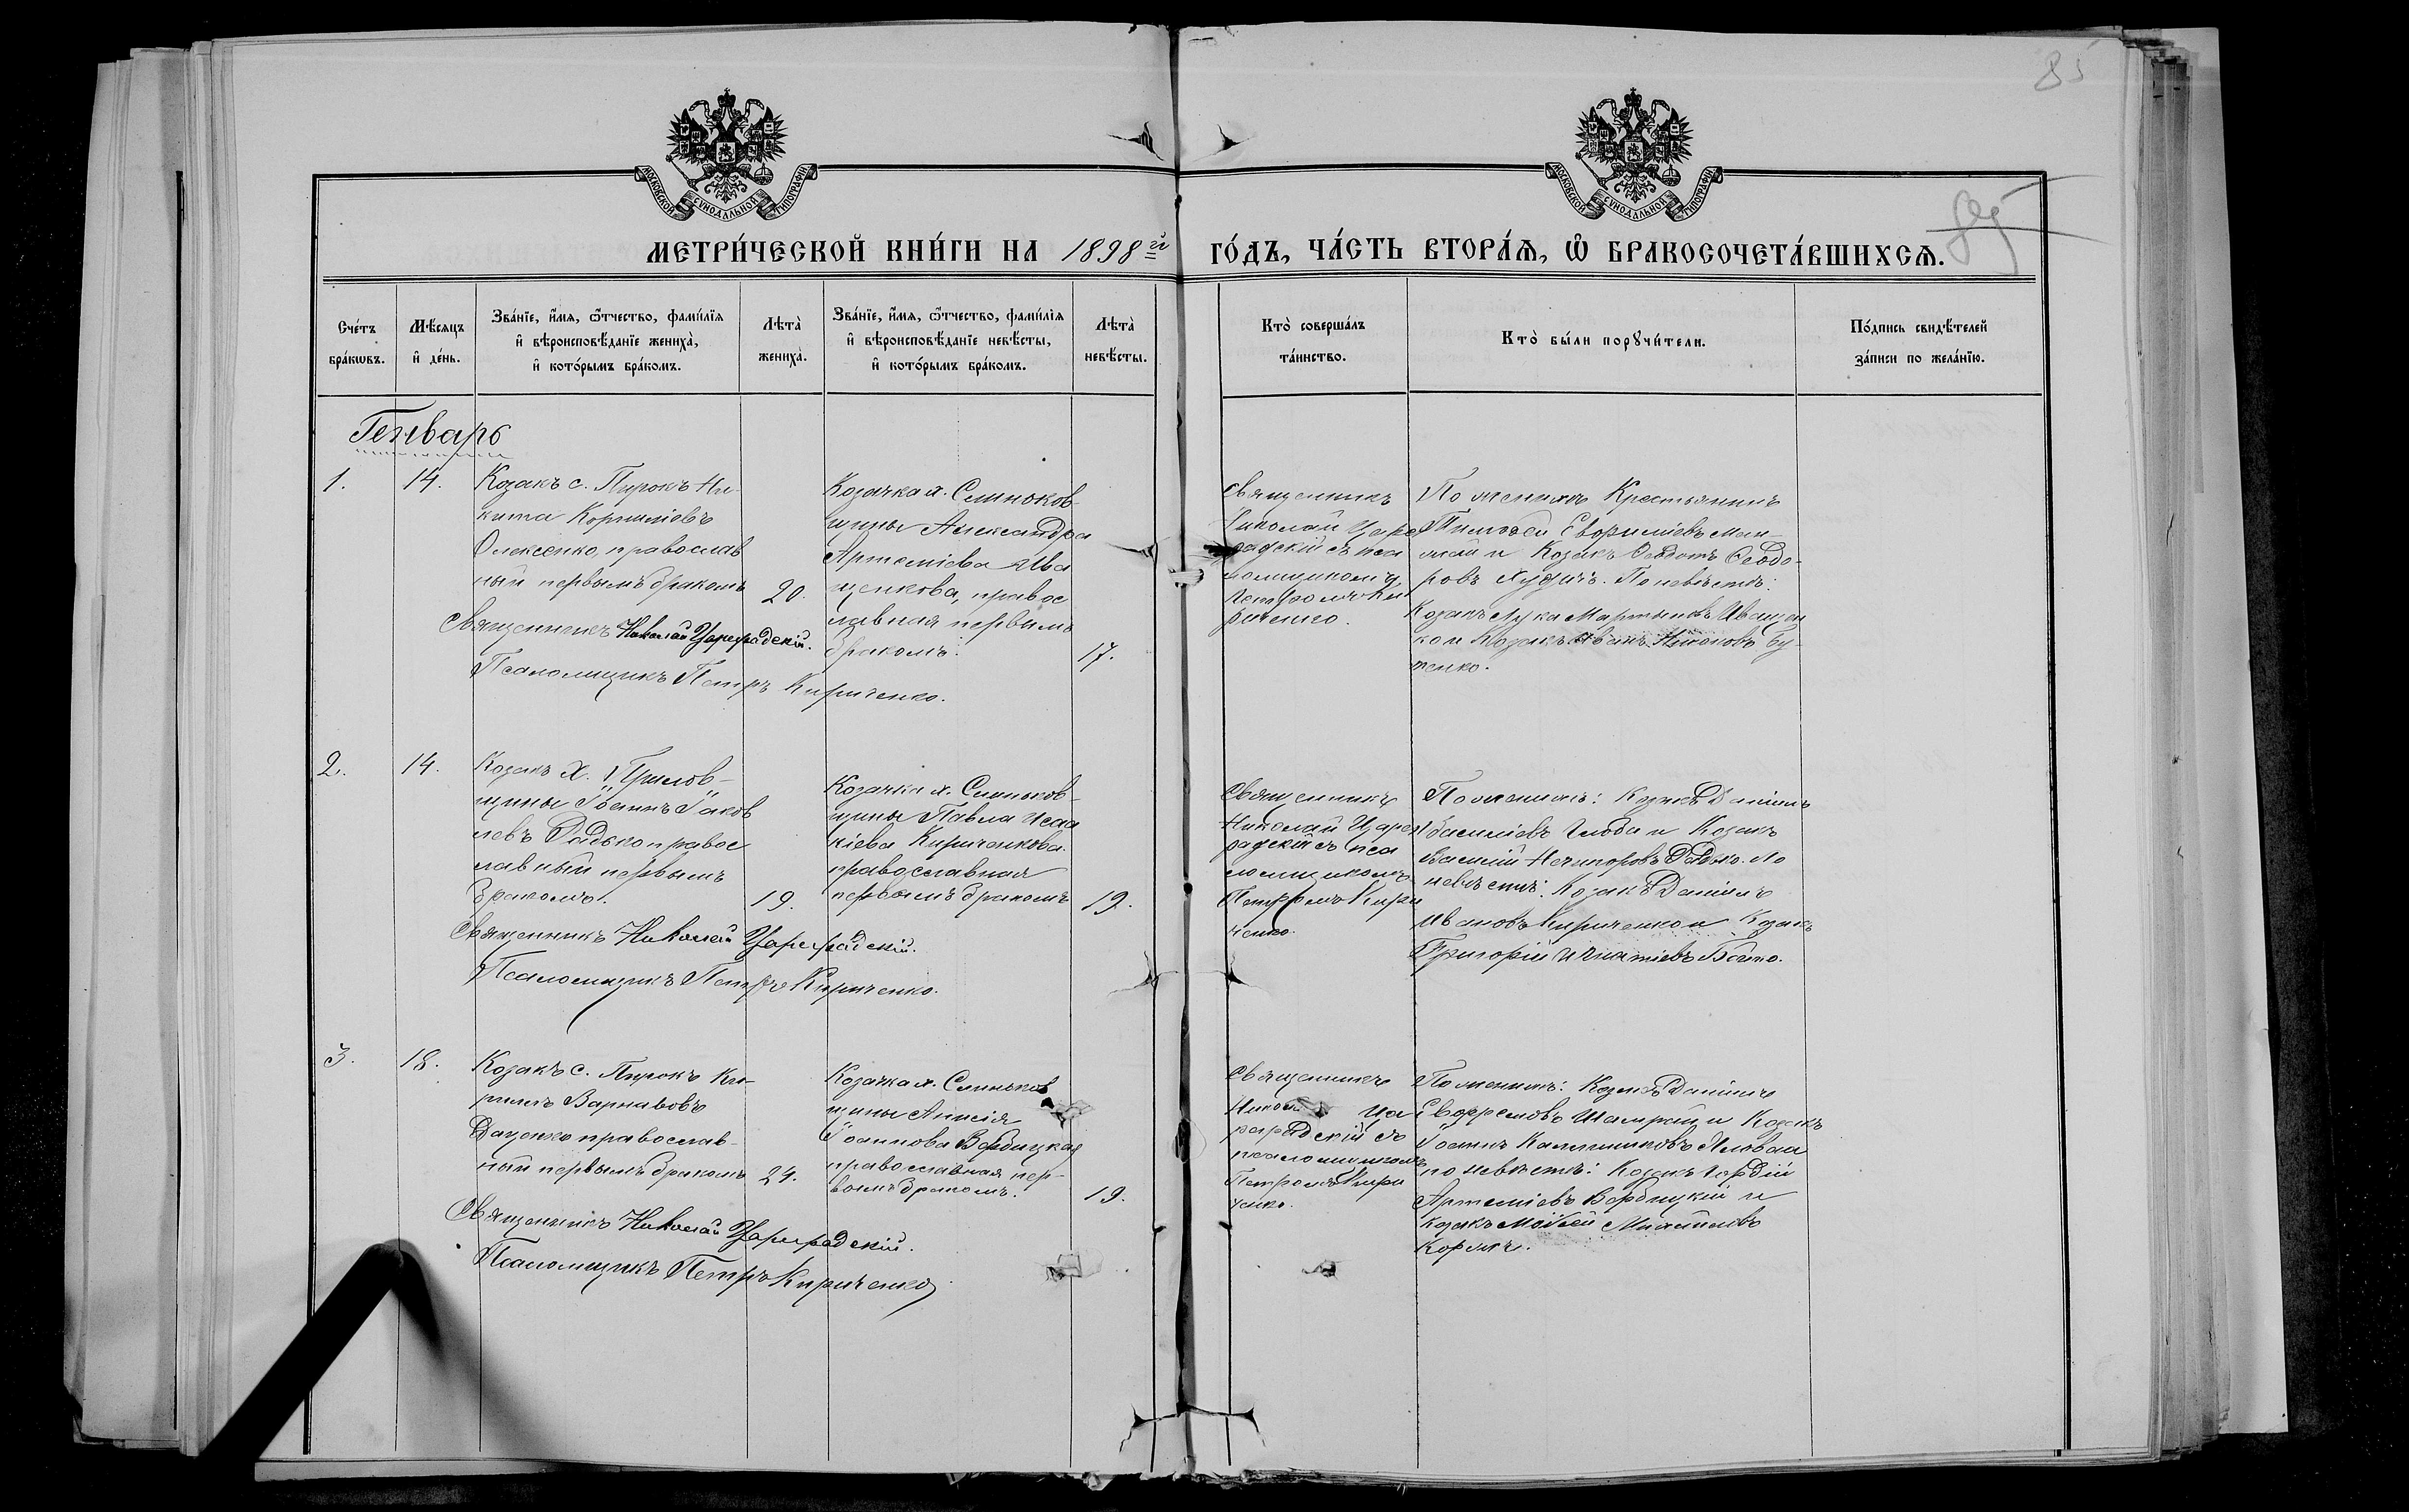 85
МОСКОВСКОЙ СѴНОДАЛЬНОЙ ТИПОГРАФІИ
МОСКОВСКОЙ СѴНОДАЛЬНОЙ ТИПОГРАФІИ
85
МЕТРИ́ЧЕСКОЙ КНИ́ГИ НА 1898й ГО́ДЪ, ЧА́СТЬ ВТОРА́Ѧ, Ѽ БРАКОСОЧЕТА́ВШИХСѦ.
Сче́тъ
бра́кѡвъ.
Мѣ́сѧцъ
и҆ де́нь.
Зва́нїе, и҆́мѧ, ѻ҆́тчество, фами́лїѧ
и҆ вѣроисповѣ́данїе жениха̀,
и҆ кото́рымъ бра́комъ.
Лѣта̀
жениха̀.
Зва́нїе, и҆́мѧ, ѻ҆́тчество, фами́лїѧ
и҆ вѣроисповѣ́данїе невѣ́сты,
и҆ кото́рымъ бра́комъ.
Лѣта̀
невѣ́сты.
Кто̀ соверша́лъ
та́инство.
Кто̀ бы́ли порꙋчи́тели.
По́дпись свидѣ́телей
за́писи по жела́нїю.
Генварь
1.
14.
Козакъ с. Пирокъ Ни-
кита Корниліевъ
Олексенко, православ
ный первымъ бракомъ
20.
Козачка х. Слиньков-
щины Александра
Артеміева Ива
щенкова, правос
лавная первымъ
бракомъ.
17.
Священникъ
Николай Царе
градскій съ пса
ломщикомъ
Петромъ Ки
риченко.
По женихъ Крестьянинъ
Тимофей Евфиміевъ
и Козакъ Федотъ Феодо-
ровъ По невѣстѣ:
Козакъ Лука Мартыновъ Иващен
ко и Козакъ Иванъ Бу-
тенко.
Священникъ Николай Цареградскій.
Псаломщикъ Петръ Кириченко.
2.
14.
Козакъ х.
щины Іоаннъ Іаков
левъ Радько правос
лавный первымъ
бракомъ.
19.
Козачка х. Слиньков-
щины Павла Исаа
кіева Кириченкова
православная
первымъ бракомъ
19.
Священникъ
Николай Царег
радскій съ пса
ломщикомъ
Петромъ Кири
ченко.
По женихъ: Козакъ Даніилъ
Василіевъ и Козакъ
Василій Нечипоровъ Радько. По
невѣстѣ: Козакъ Даніилъ
Ивановъ Кириченко и Козакъ
Григорій Игнатіевъ Бойко.
Священникъ Николай Цареградскій.
Псаломщикъ Петръ Кириченко.
3.
18.
Козакъ с. Пирокъ Ки-
рилъ Варнавовъ
Даценко православ-
ный первымъ бракомъ
24.
Козачка х. Слиньков
щины Анисія
Іоаннова Вербицкая
православная пер-
вымъ бракомъ.
19.
Священникъ
Никол Ца
реградскій съ
псаломщикомъ
Петромъ Кири
ченко.
По женихъ: Козакъ Даніилъ
Евфремовъ Шамрай и Козакъ
Іоаннъ
по невѣстѣ: Козакъ Гордій
Артеміевъ Вербицкій и
козакъ Моисей Михайловъ
Коржъ.
Священникъ Николай Цареградскій.
Псаломщикъ Петръ Кириченко